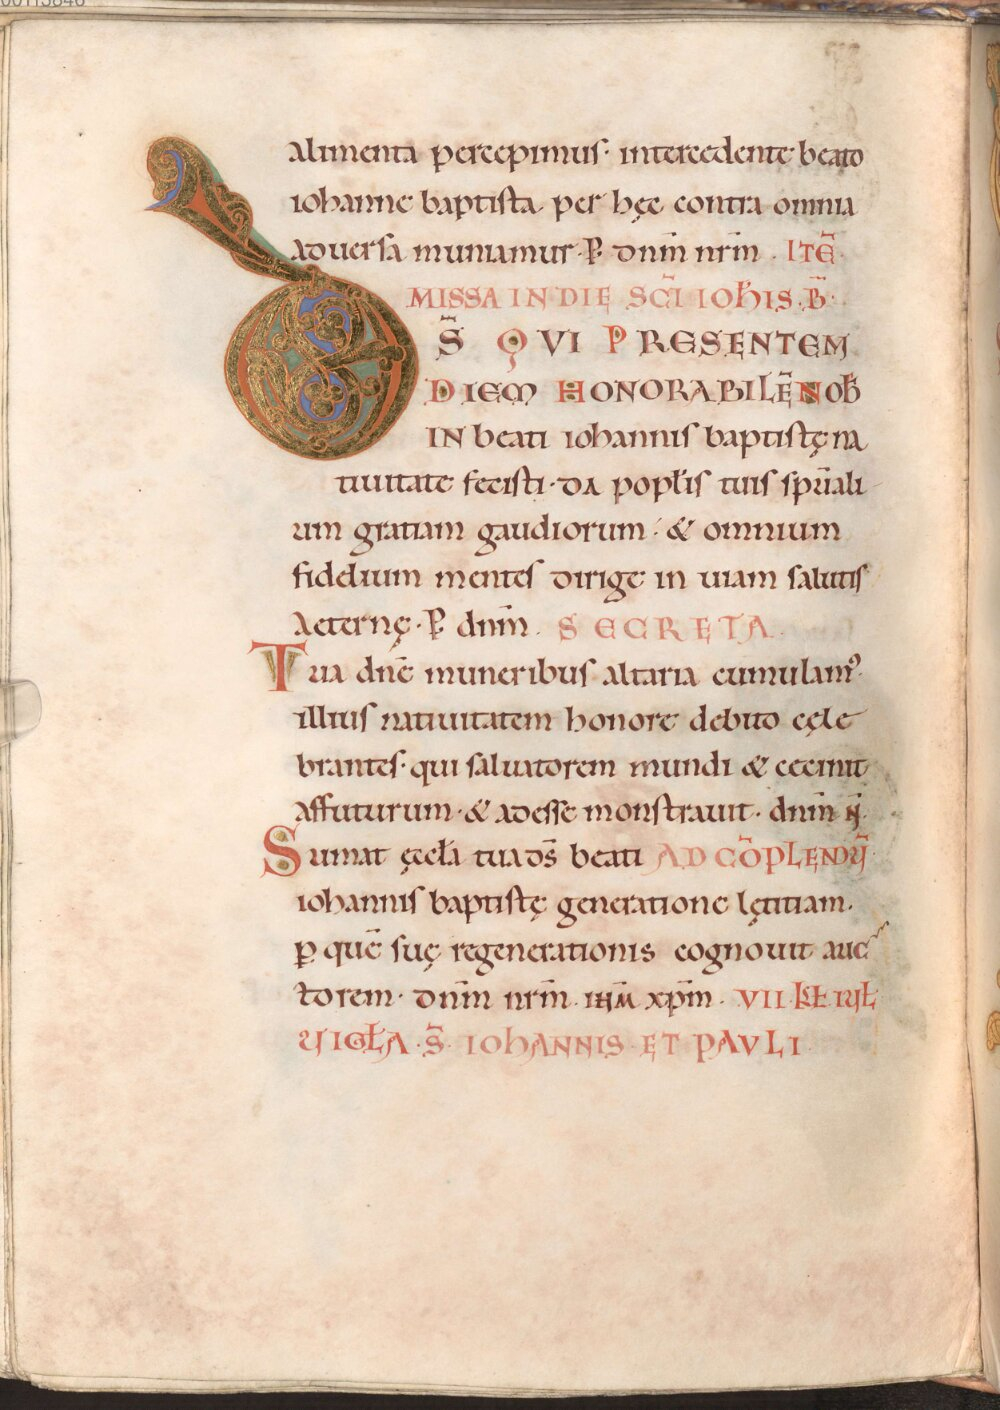 alimenta percepimus· intercedente beato
iohanne baptista. per hęc contra omnia
aduersa muniamur· P̲ dnm̄ nrm̄. ITĒ
MISSA IN DIE SC̄I IOHIS. B̄.
DS̄ QVI PRESENTEM
DIEM HONORABILĒ NOB̄
IN beati iohannis baptistę na
tiuitate fecisti· da popl̄is tuis spūali
um gratiam gaudiorum· & omnium
fidelium mentes dirige in uiam salutis
aeternę· P̲ dnm̄. SECRETA
Tua dnē muneribus altaria cumulam᾽
illius natiuitatem honore debito cęle
brantes· qui saluatorem mundi & cecinit
affuturum· & adesse monstrauit· dnm̄ n̄.
Sumat ęccl̄a tua ds̄ beati AD CŌPLEND̄
iohannis baptistę generatione lętitiam.
ꝑ quē suę regenerationis cognouit auc
torem· dnm̄ nrm̄. ihm̄ xpm̄. VII KŁ IUŁ
VIGŁA· S̄. IOHANNIS ET PAVLI